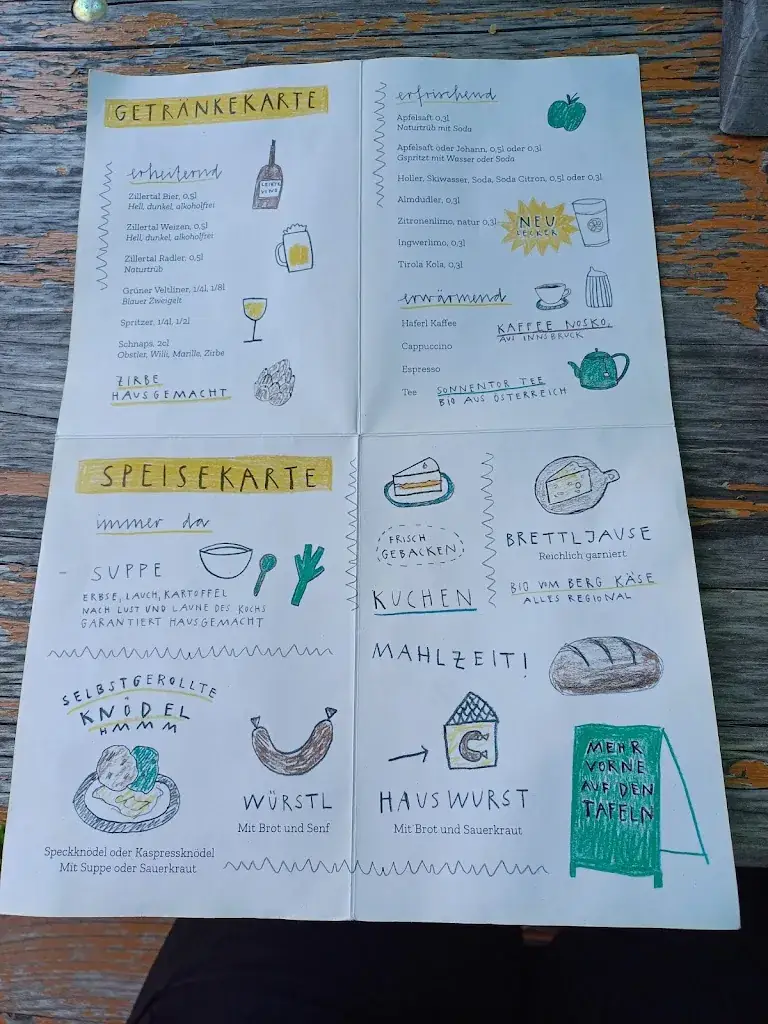 GETRÄNKEKARTE
erheiternd
Zillertal Bier, 0,5l
Hell, dunkel, alkoholfrei
Zillertal Weizen, 0,5l
Hell, dunkel, alkoholfrei
Zillertal Radler, 0,5l
Naturtrüb
Grüner Veltliner, 1/4l, 1/8l
Blauer Zweigelt
Spritzer, 1/4l, 1/2l
Schnaps, 2cl
Obstler, Willi, Marille, Zirbe
ZIRBE
HAUSGEMACHT
erfrischend
Apfelsaft 0,3l
Naturtrüb mit Soda
Apfelsaft oder Johann, 0,5l oder 0,3l
Gspritzt mit Wasser oder Soda
Holler, Skiwasser, Soda, Soda Citron, 0,5l oder 0,3l
Almdudler, 0,3l
Zitronenlimo, natur 0,3l
NEU
LECKER
Ingwerlimo, 0,3l
Tirola Kola, 0,3l
erwärmend
Haferl Kaffee
KAFFEE NOSKO,
AUS INNSBRUCK
Cappuccino
Espresso
Tee
SONNENTOR TEE
BIO AUS ÖSTERREICH
SPEISEKARTE
immer da
- SUPPE
ERBSE, LAUCH, KARTOFFEL
NACH LUST UND LAUNE DES KOCHS
GARANTIERT HAUSGEMACHT
SELBSTGEROLLTE
KNÖDEL
HMMM
Speckknödel oder Kaspressknödel
Mit Suppe oder Sauerkraut
WÜRSTL
Mit Brot und Senf
FRISCH
GEBACKEN
KUCHEN
BRETTLJAUSE
Reichlich garniert
BIO VIM BERG KÄSE
ALLES REGIONAL
MAHLZEIT!
HAUSWURST
Mit Brot und Sauerkraut
MEHR
VORNE
AUF DEN
TAFELN